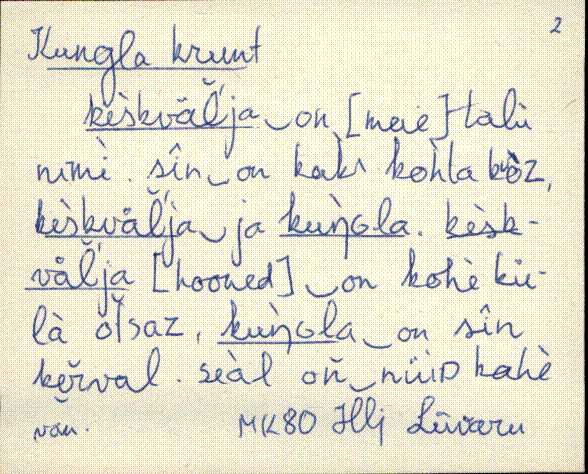 2
Kungla krunt
kèskvälja on [meie] talù
nìmì. sîn on kaks kohta koz,
kèskvälja ja kuŋ̀gla. kèsk-
välja [hooned] on kohè kü-
là otsaz, kuŋ̀gla on sîn
kerval. seàl on nüID kahè
MK80 Hlj Lüvaru